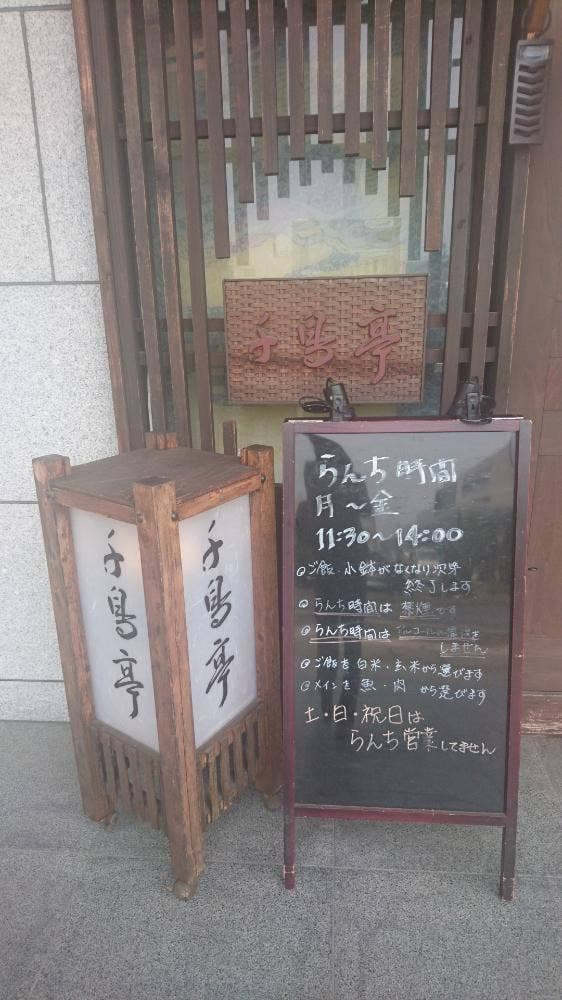 千鳥亭
千鳥亭
千鳥亭
らんち時間
月～金
11:30～14:00
◎ご飯・小鉢がなくなり次第
終了します
◎らんち時間は 禁煙です
◎らんち時間は アルコールの提供を
しません
◎ご飯を 白米・玄米から選びます
◎メインを 魚・肉 から選びます
土・日・祝日は
らんち営業してません